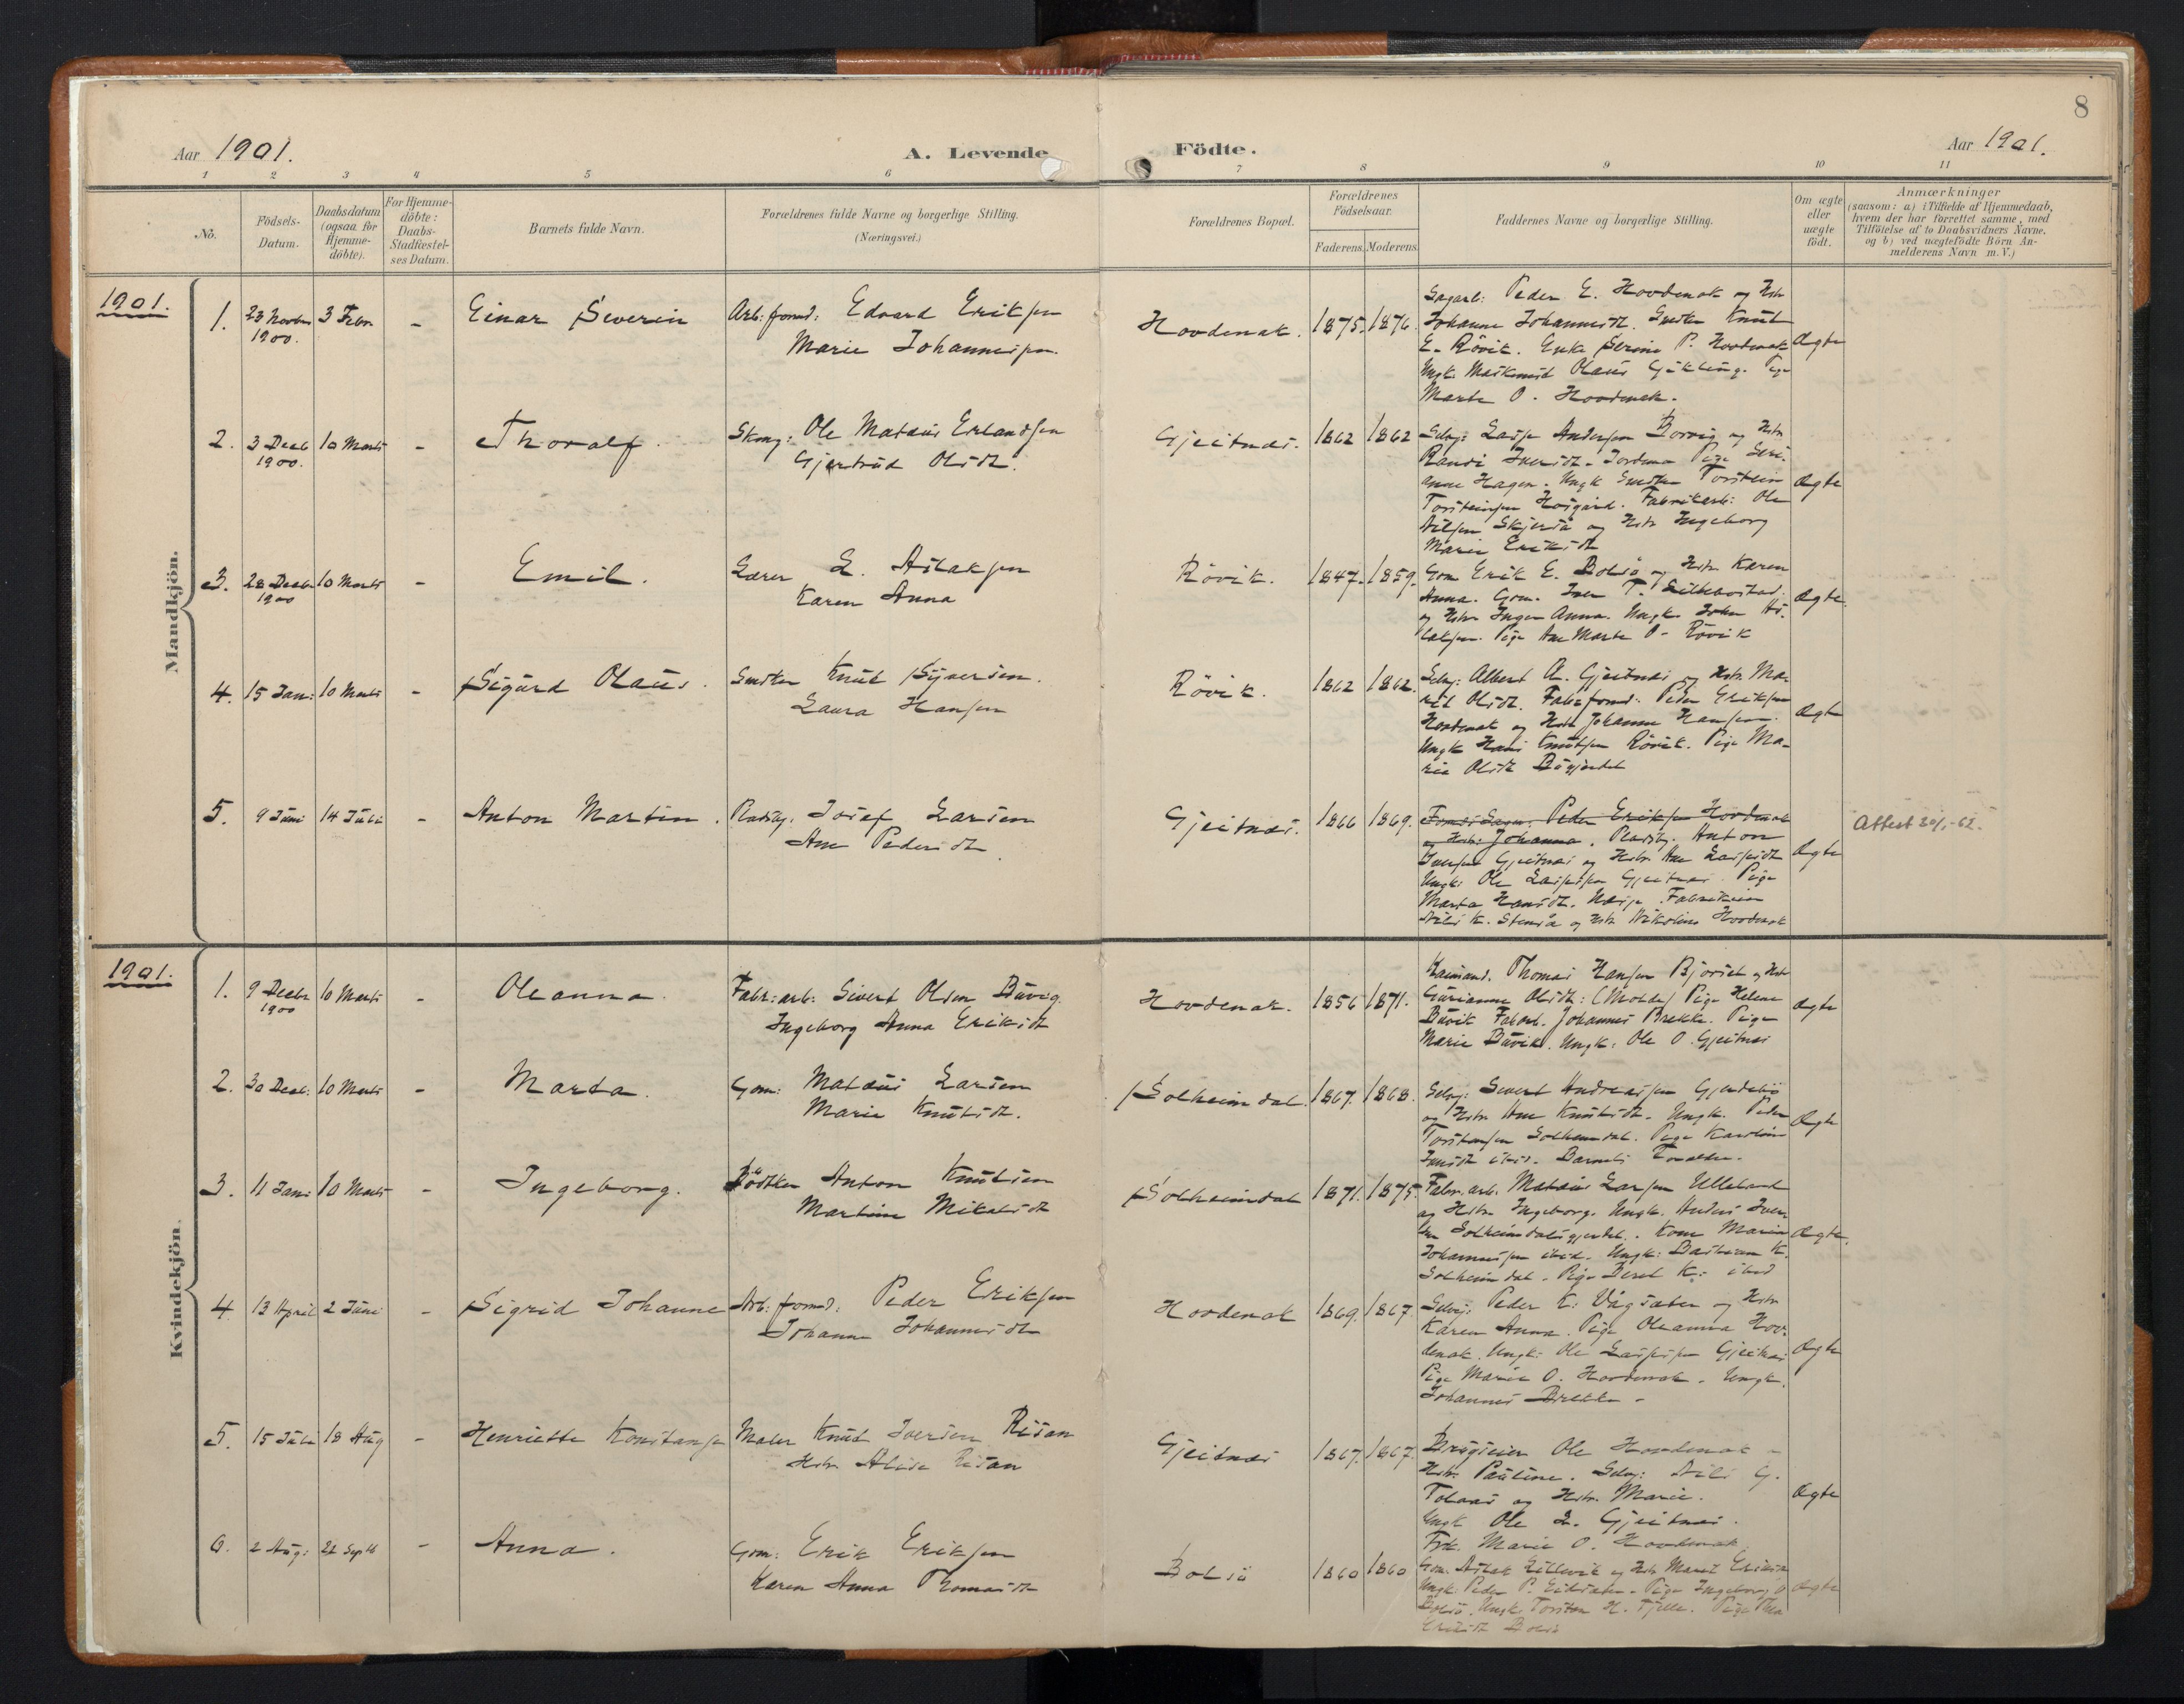 8
Aar 1901.
A. Levende
Födte.
Aar 1901.
1 2 3 4 5 6 7 8 9 10 11
No.
Födsels-
Datum.
Daabsdatum
(ogsaa for
Hjemme-
döbte).
For Hjemme-
döbte:
Daabs-
Stadfæstel-
ses Datum.
Barnets fulde Navn.
Forældrenes fulde Navne og borgerlige Stilling.
(Næringsvei.)
Forældrenes Bopæl.
Forældrenes
Födselsaar.
Faderens. Moderens.
Faddernes Navne og borgerlige Stilling.
Om ægte
eller
uægte
födt.
Anmærkninger
(saasom: a) i Tilfælde af Hjemmedaab,
hvem der har forrettet samme, med
Tilföielse af to Daabsvidners Navne.
og b) ved uægtefödte Börn An-
melderens Navn m.V.)
Mandkjön.
1901.
1. 23 Novbr 3 Febr - Einar Severin Arb: formd: Edvard Eriksen
1900.
Marie Johannessen.
Hovdenak. 1875. 1876.
Peder E. Hovdenak og Hstr
Johanne Johannesdt. Knut
E. Rövik. Enke Serine P. Hovdenak
Ungk. Olaus Pige
Marta O. Hovdenak.
Ægte
2. 3 Decb 10 Marts - Thoralf. Ole Matæus Erlandsen
1900.
Gjertrud Olsdt.
Gjeitnæs. 1862 1862
Selvej: Lasse Andersen og Hstr
Randi Iversdt. Pige Seri-
anne Hagen. Ungk Torstein
Torsteinsen Fabrikarb: Ole
Nilsen og Hstr Ingeborg
Marie Eriksdt
Ægte
3. 28 Decbr 10 Marts - Emil. Lærer L. Aslaksen
1900
Karen Anna
Rövik. 1847. 1859.
Gm. Erik E. Bolsö og Hstr. Karen
Anna. Gm. Iver T.
og Hstr Inger Anna. Ungk. John As-
laksen. Pige Ane Marta O. Rövik
Ægte.
4. 15 Jan: 10 Marts - Sigurd Olaus. Knut Syversen.
Laura Hansen
Rövik. 1862 1862.
Selvej: Albert A. Gjeitnæs og Hstr. Ma-
rit Olsdt. Peder Eriksen
Hovdenak og Hstr Johanne Hansen.
Ungk Hans Knutsen Rövik. Pige Ma-
rie Olsdt
Ægte
5. 9 Juni 14 Juli - Anton Martin. Pladsbg. Josef Larsen
Ane Pedersdt
Gjeitnæs. 1866 1869.
Peder Eriksen Hovdenak
og Hstr: Johanna. Pladsbg. Anton
Iversen Gjeitnæs og Hstr. Ane
Ungk: Ole Gjeitnæs. Pige
Marta Hansdt.
Nils K. og Hstr Nikoline Hovdenak
Ægte
Attest 30/1-62.
Kvindekjön.
1901.
1. 9 Decbr 10 Marts - Oleanna. Fabr: arb: Sivert Olsen Buvig.
1900
Ingeborg Anna Eriksdt
Hovdenak. 1856 1871.
Thomas Hansen og Hstr
Gurianne Olsdt: (Molde) Pige Helene
Buvik Johannes Brekke. Pige
Marie Buvik. Ungk: Ole O. Gjeitnæs
Ægte
2. 30 Decb: 10 Marts - Marta. Gm: Matæus Larsen
Marie Knutsdt.
Solheimdal. 1867. 1868.
Selvej: Sivert Andreassen
og Hstr Ane Knutsdt. Ungk. Peder
Torstensen Solheimdal. Pige Karoline
ibid. Barnets
Ægte
3. 11 Jan: 10 Marts - Ingeborg. Bödker Anton Knutsen
Martine Mikalsdt
Solheimdal 1871. 1875.
Fabr. arb. Matæus Larsen
og Hstr Ingeborg. Ungk. Iver-
sen Solheimdalsgjerdet. Kone Marie
Johannessen ibid. Ungk: Bastian K.
Solheimdal. Pige Beret K. ibid
Ægte.
4. 13 April 2 Juni - Sigrid Johanne Arb: formd: Peder Eriksen
Johanne Johannesdt
Hovdenak 1869. 1867.
Selvej. Peder K. Vågsæter og Hstr
Karen Anna. Pige Oleanna Hov-
denak. Ungk: Ole Gjeitnæs
Pige Marie O. Hovdenak. Ungk.
Johannes Brekke.
Ægte
5. 15 Juli 18 Aug - Henriette Konstanse Maler Knut Iversen Risan
Hstr. Alise Risan
Gjeitnæs 1867. 1867.
Ole Hovdenak
Hstr. Pauline. Selvej: Nils G.
Tolaas og Hstr. Marie.
Ungk Ole L. Gjeitnæs.
Frk. Marie O. Hovdenak.
Ægte
6. 2 Aug: 22 Septb - Anna. Gm: Erik Eriksen
Karen Anna Thomasdt
Bolsö 1860 1860
Gm. Aslak Lillevik og Hstr Marit Eriksdt
Ungk: Peder P. Pige Ingeborg O
Bolsö. Ungk. Torsten H. Fjelle. Pige Thea
Eriksdt Bolsö
Ægte